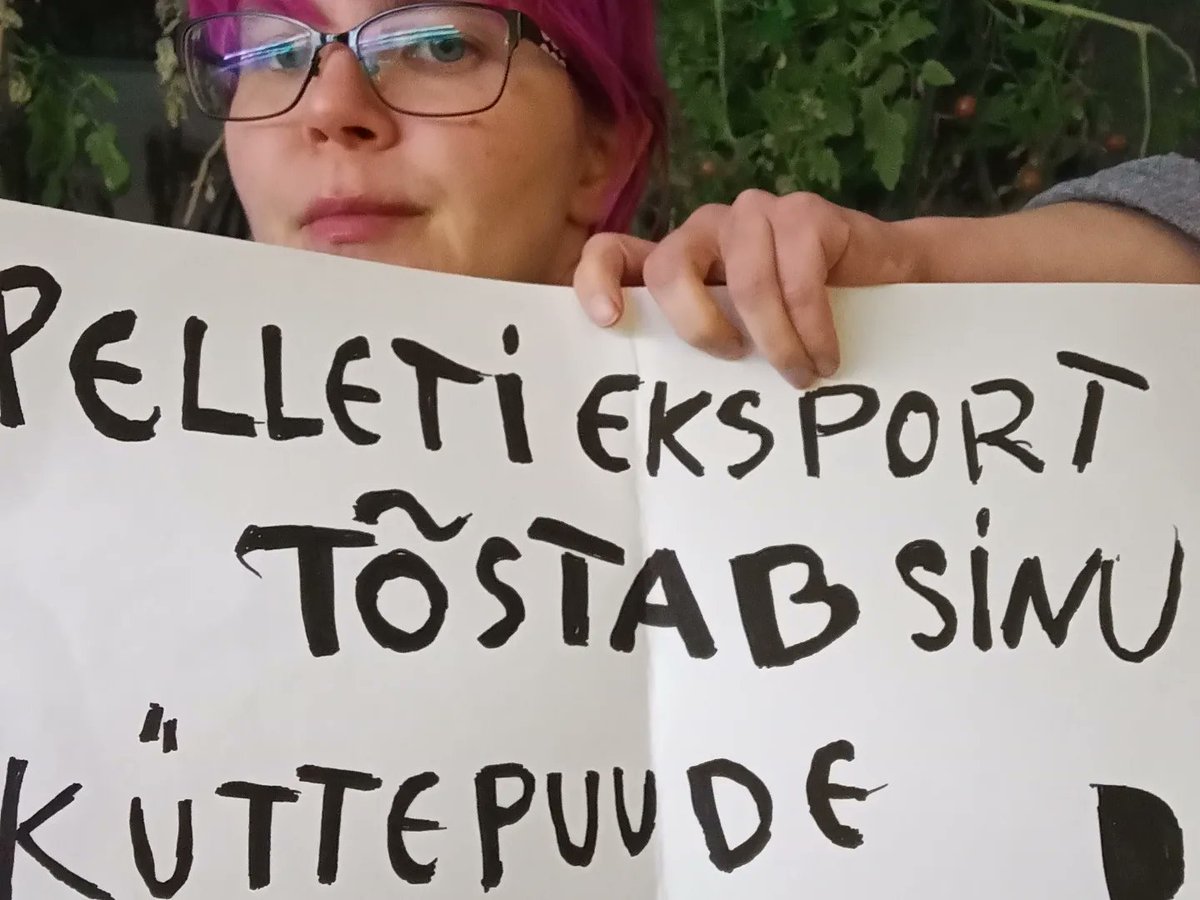 PELLETI EKSPORT
TÕSTAB SINU
KÜTTEPUUDE